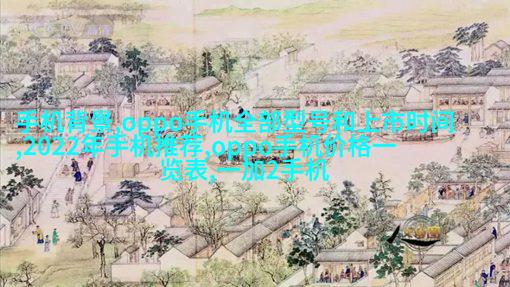 手机背景,oppo手机全部型号和上市时间
,2022年手机推荐,oppo手机价格一
览表,一加2手机